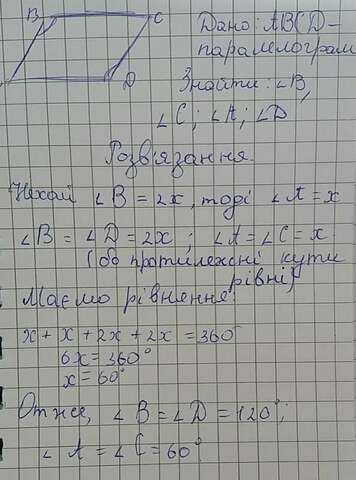 B
C
D
Дано: ABCD-
паралелограм
Знайти: ∠B,
∠C; ∠A; ∠D
Розв'язання.
Нехай ∠B = 2x, тоді ∠A = x
∠B = ∠D = 2x ; ∠A = ∠C = x
(бо протилежні кути
рівні)
Маємо рівняння:
x + x + 2x + 2x = 360°
6x = 360°
x = 60°
Отже, ∠B = ∠D = 120°;
∠A = ∠C = 60°